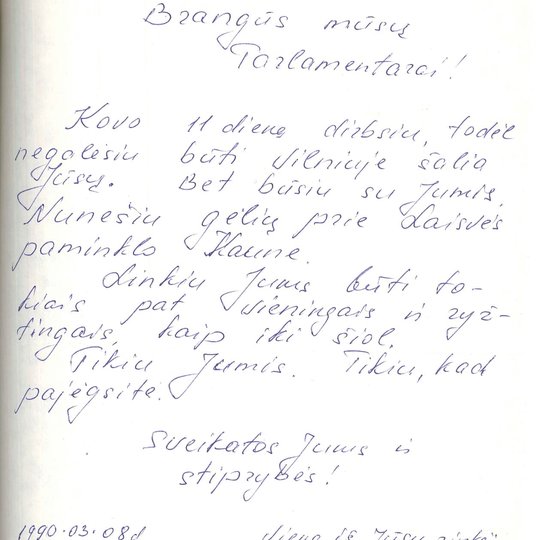 Brangūs mūsų
Parlamentarai!
Kovo 11 dieną dirbsiu, todėl
negalėsiu būti Vilniuje šalia
Jūsų. Bet būsiu su Jumis.
Nunešiu gėlių prie Laisvės
paminklo Kaune.
Linkiu Jums būti to-
kiais pat vieningais ir ryž-
tingais, kaip iki šiol.
Tikiu Jumis. Tikiu, kad
pajėgsite.
Sveikatos Jums ir
stiprybės!
1990.03.08d viena iš Jūsų